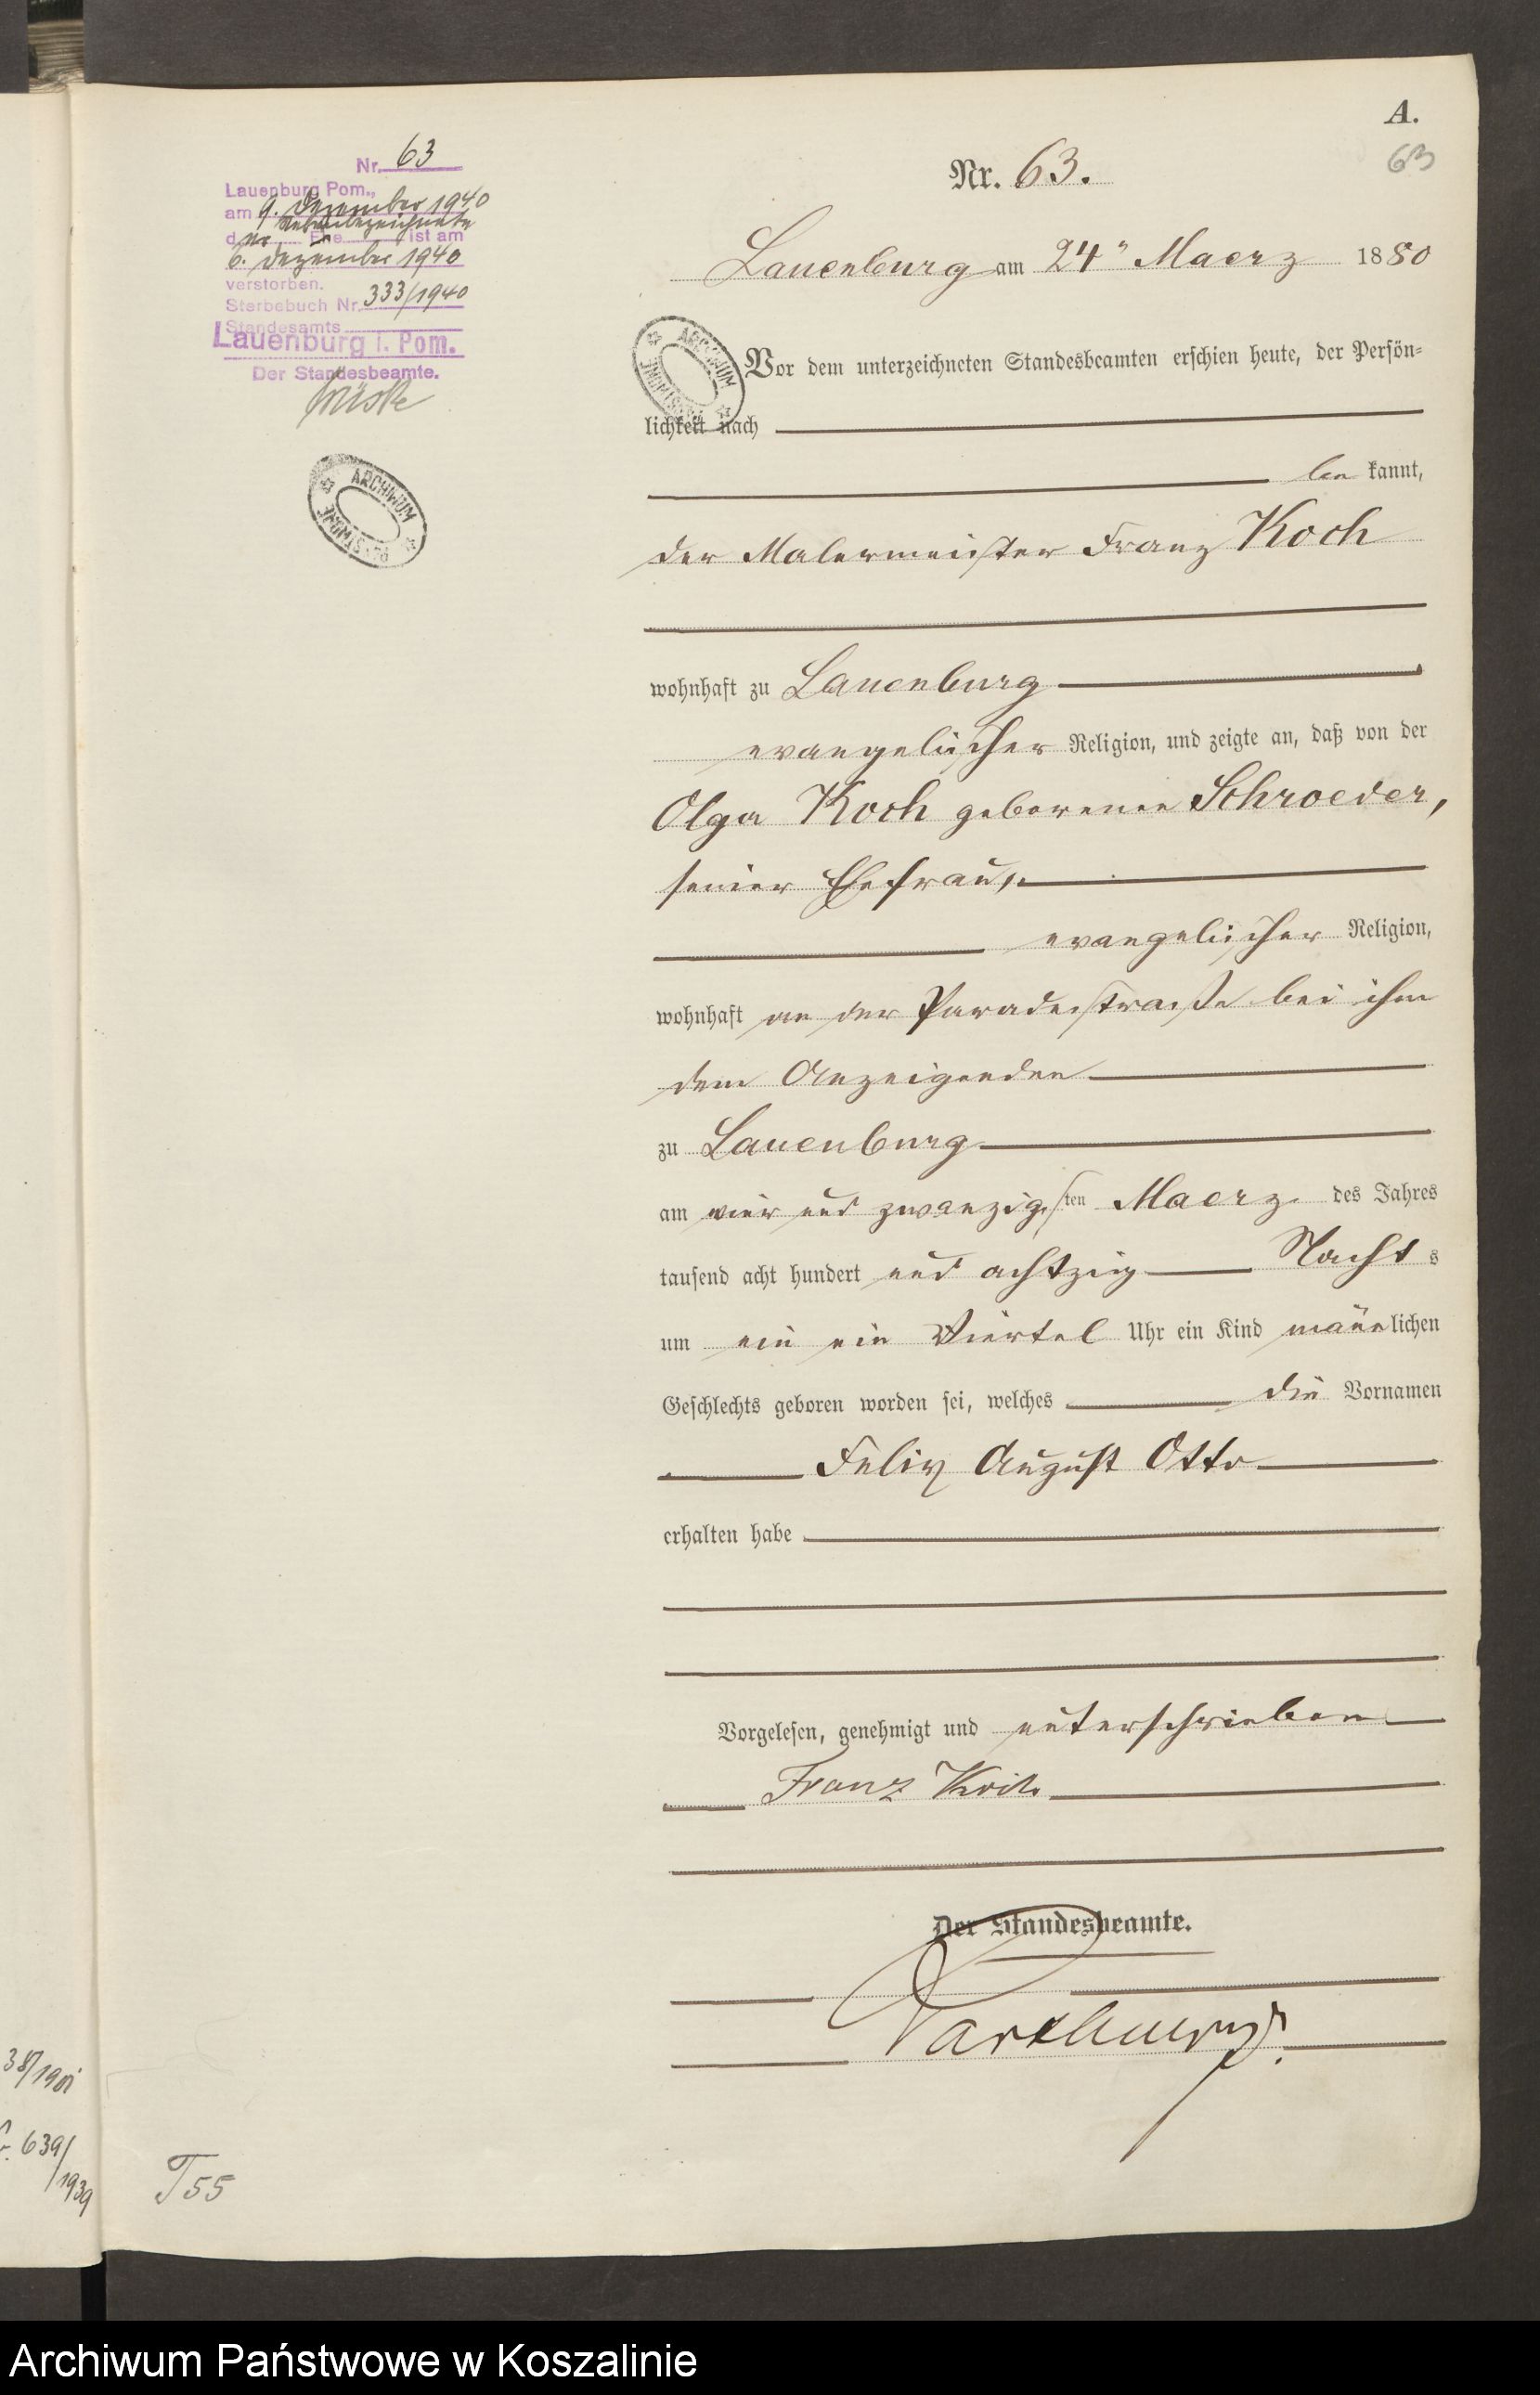 A.
63
Nr. 63.
Lauenburg am 24" Maerz 1880
Vor dem unterzeichneten Standesbeamten erschien heute, der Persön-
lichkeit nach
be kannt,
der Malermeister Franz Koch
wohnhaft zu Lauenburg
evangelischer Religion, und zeigte an, daß von der
Olga Koch geborenen Schroeder,
seiner Ehefrau,
evangelischer Religion,
wohnhaft an der Paradestrasse bei ihm
dem Anzeigenden
zu Lauenburg
am vier und zwanzigsten Maerz des Jahres
tausend acht hundert und achtzig Nacht s
um ein ein Viertel Uhr ein Kind männlichen
Geschlechts geboren worden sei, welches die Vornamen
Felix August Otto
erhalten habe
Vorgelesen, genehmigt und unterschrieben
Franz Koch
Der Standesbeamte.
Nr. 63
Lauenburg Pom.,
am 9. Dezember 1940
d er Nebenbezeichnete Ehe ist am
6. Dezember 1940
verstorben.
Sterbebuch Nr. 333/1940
Standesamts
Lauenburg i. Pom.
Der Standesbeamte.
ARCHIWUM
ARCHIWUM
38/1901
r. 639/
1939
T55
Archiwum Państwowe w Koszalinie